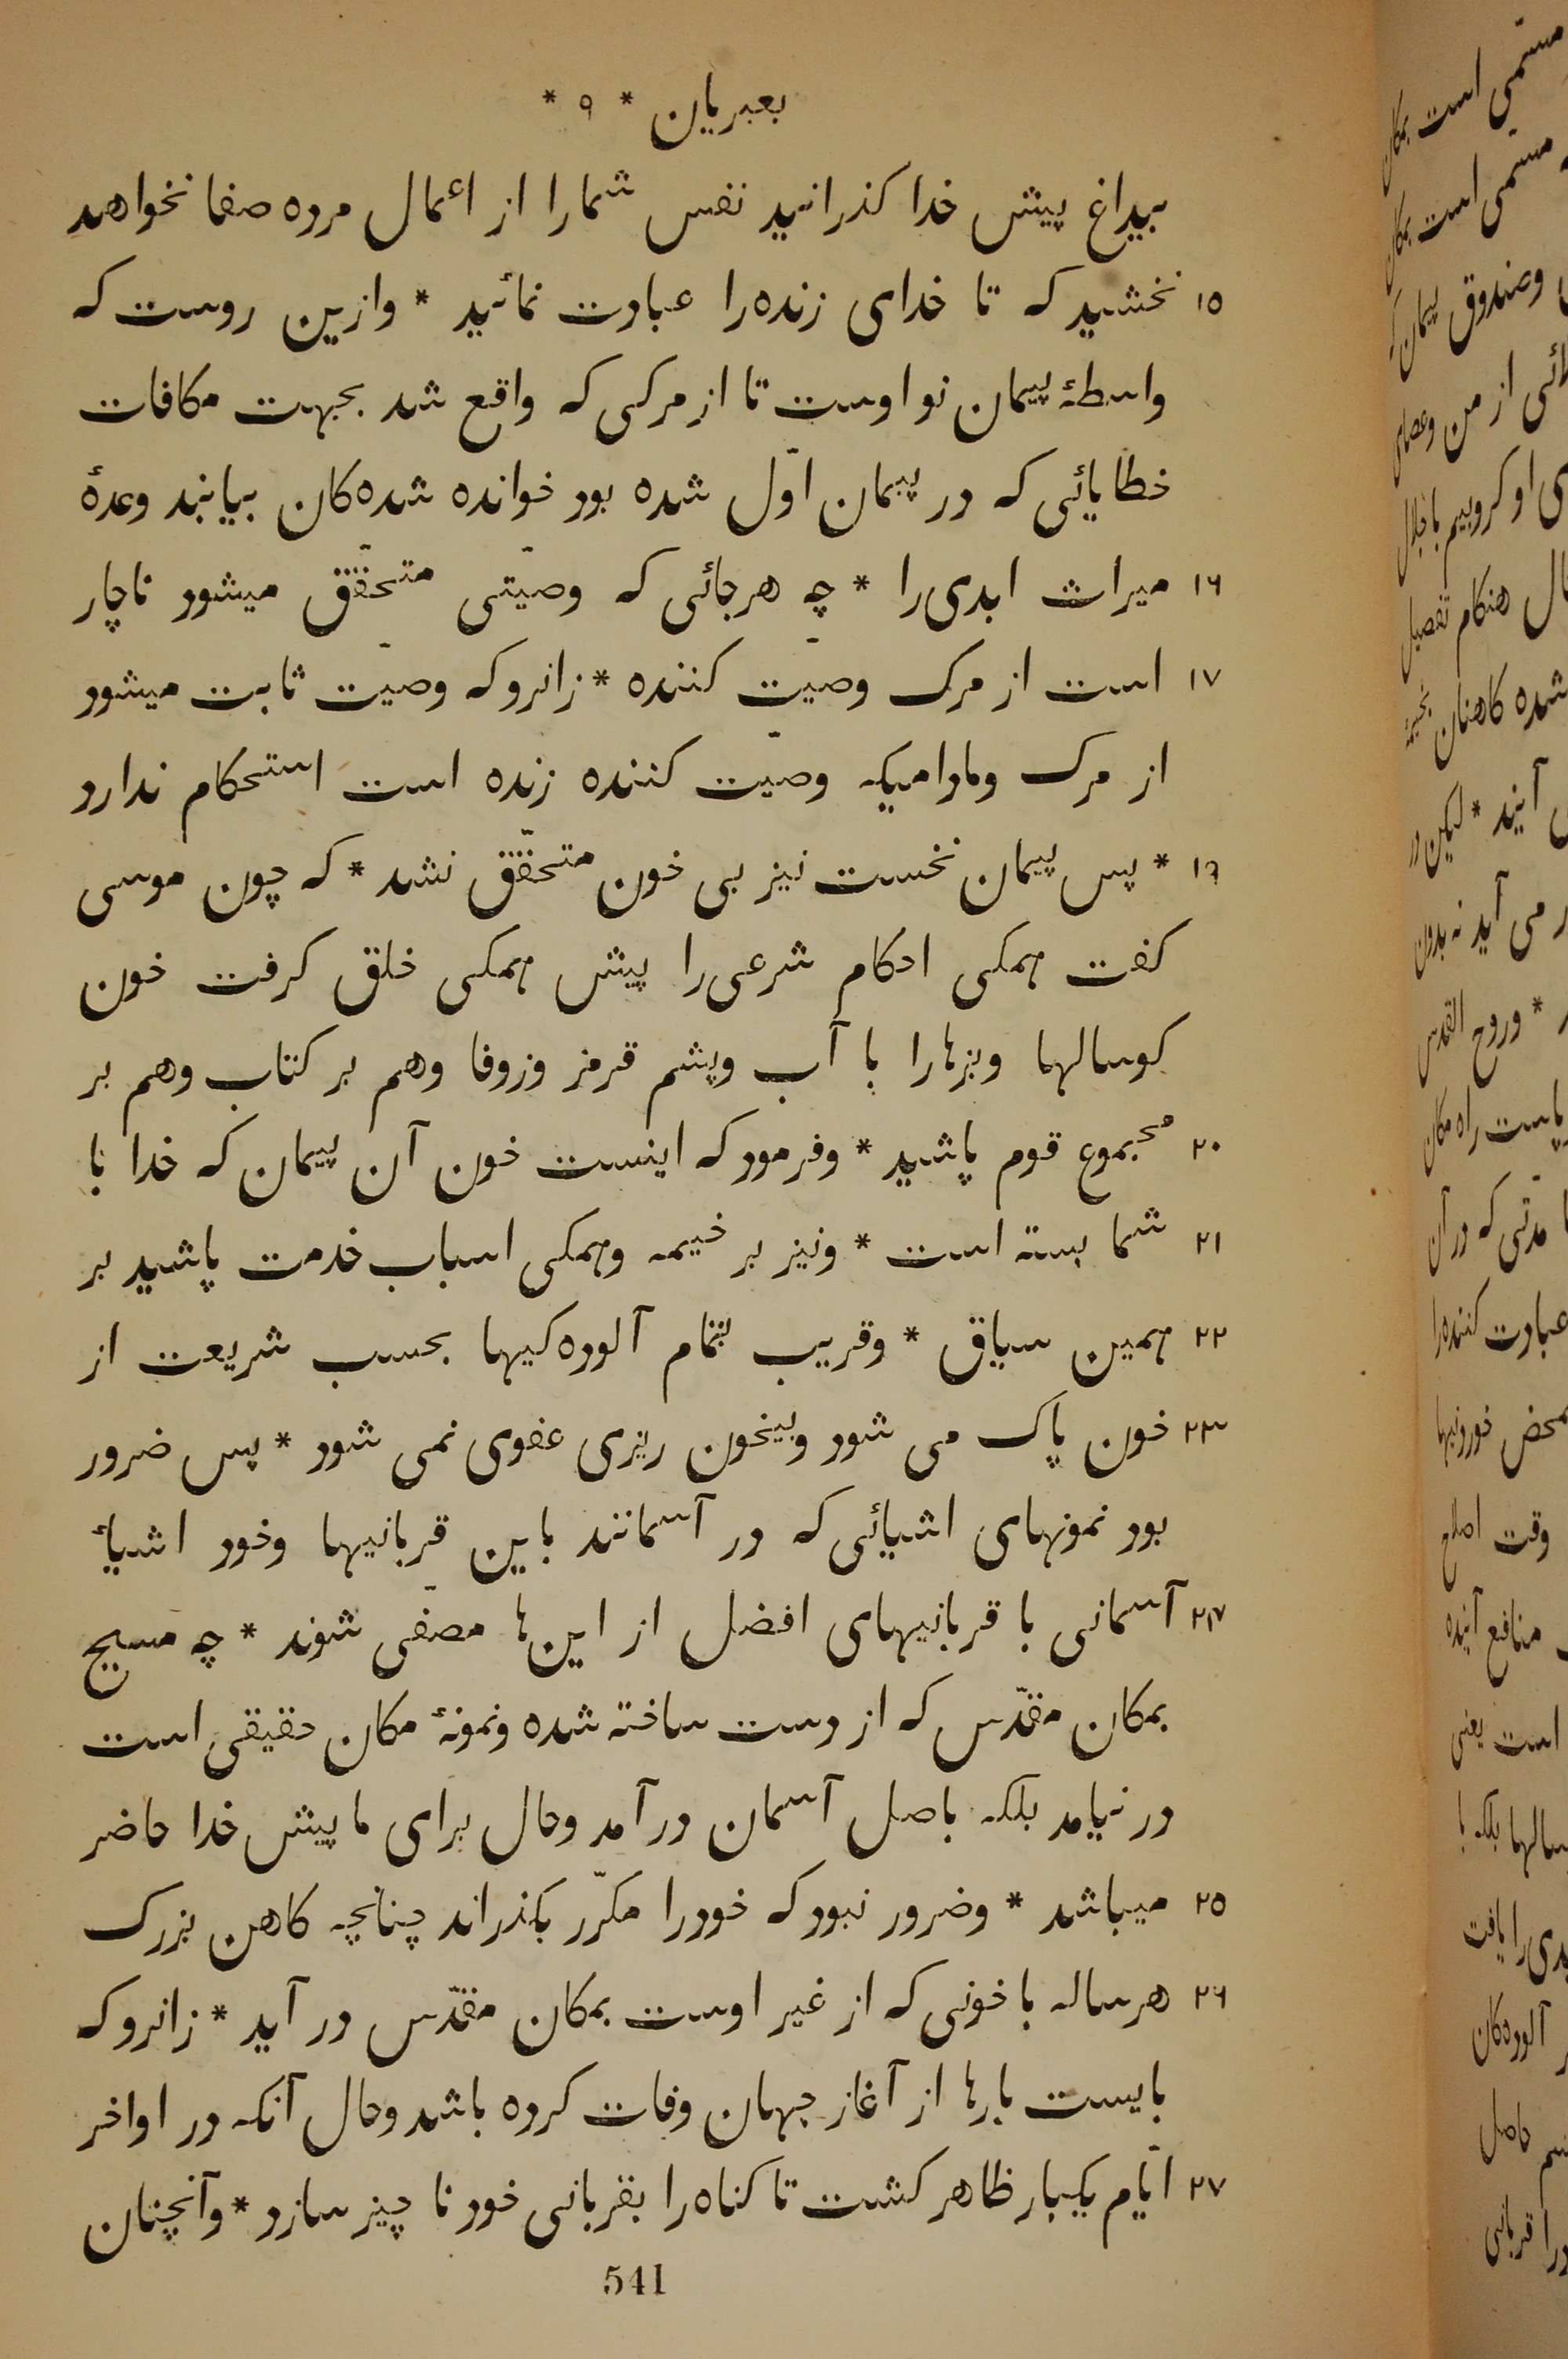 بعبریان * ۹ *
بیداغ پیش خدا کذرانید نفس شمارا از اعمال مرده صفا نخواهد
۱۵ بخشید که تا خدای زنده‌را عبادت نمائید * وازین روست که
واسطهٔ پیمان نو اوست تا از مرکی که واقع شد بجهت مکافات
خطایائی که در پیمان اوّل شده بود خوانده شده‌کان بیابند وعدهٔ
۱۶ میراث ابدی‌را * چه هرجائی که وصیّتی متحقّق میشود ناچار
۱۷ است از مرک وصیّت کننده * زانروکه وصیّت ثابت میشود
از مرک ومادامیکه وصیّت کننده زنده است استحکام ندارد
۱۹ * پس پیمان نخست نیز بی خون متحقّق نشد * که چون موسی
کفت همکی احکام شرعی‌را پیش همکی خلق کرفت خون
کوسالها وبزهارا با آب وپشم قرمز وزوفا وهم بر کتاب وهم بر
۲۰ مجموع قوم پاشید * وفرمود که اینست خون آن پیمان که خدا با
۲۱ شما بسته است * ونیز بر خیمه وهمکی اسباب خدمت پاشید بر
۲۲ همین سیاق * وقریب بتمام آلوده‌کیها بحسب شریعت از
۲۳ خون پاک می شود وبیخون ریزی عفوی نمی شود * پس ضرور
بود نمونهای اشیائی که در آسمانند باین قربانیها وخود اشیاٴ
۲۴ آسمانی با قربانیهای افضل از این‌ها مصفّی شوند * چه مسیح
بمکان مقدّس که از دست ساخته شده ونمونهٔ مکان حقیقی است
در نیامد بلکه باصل آسمان در آمد وحال برای ما پیش خدا حاضر
۲۵ میباشد * وضرور نبود که خودرا مکرّر بکذراند چنانچه کاهن بزرک
۲۶ هرساله با خونی که از غیر اوست بمکان مقدّس در آید * زانروکه
بایست بارها از آغاز جهان وفات کرده باشد وحال آنکه در اواخر
۲۷ ایّام یکبار ظاهر کشت تا کناه‌را بقربانی خود نا چیز سازد * وآنچنان
541